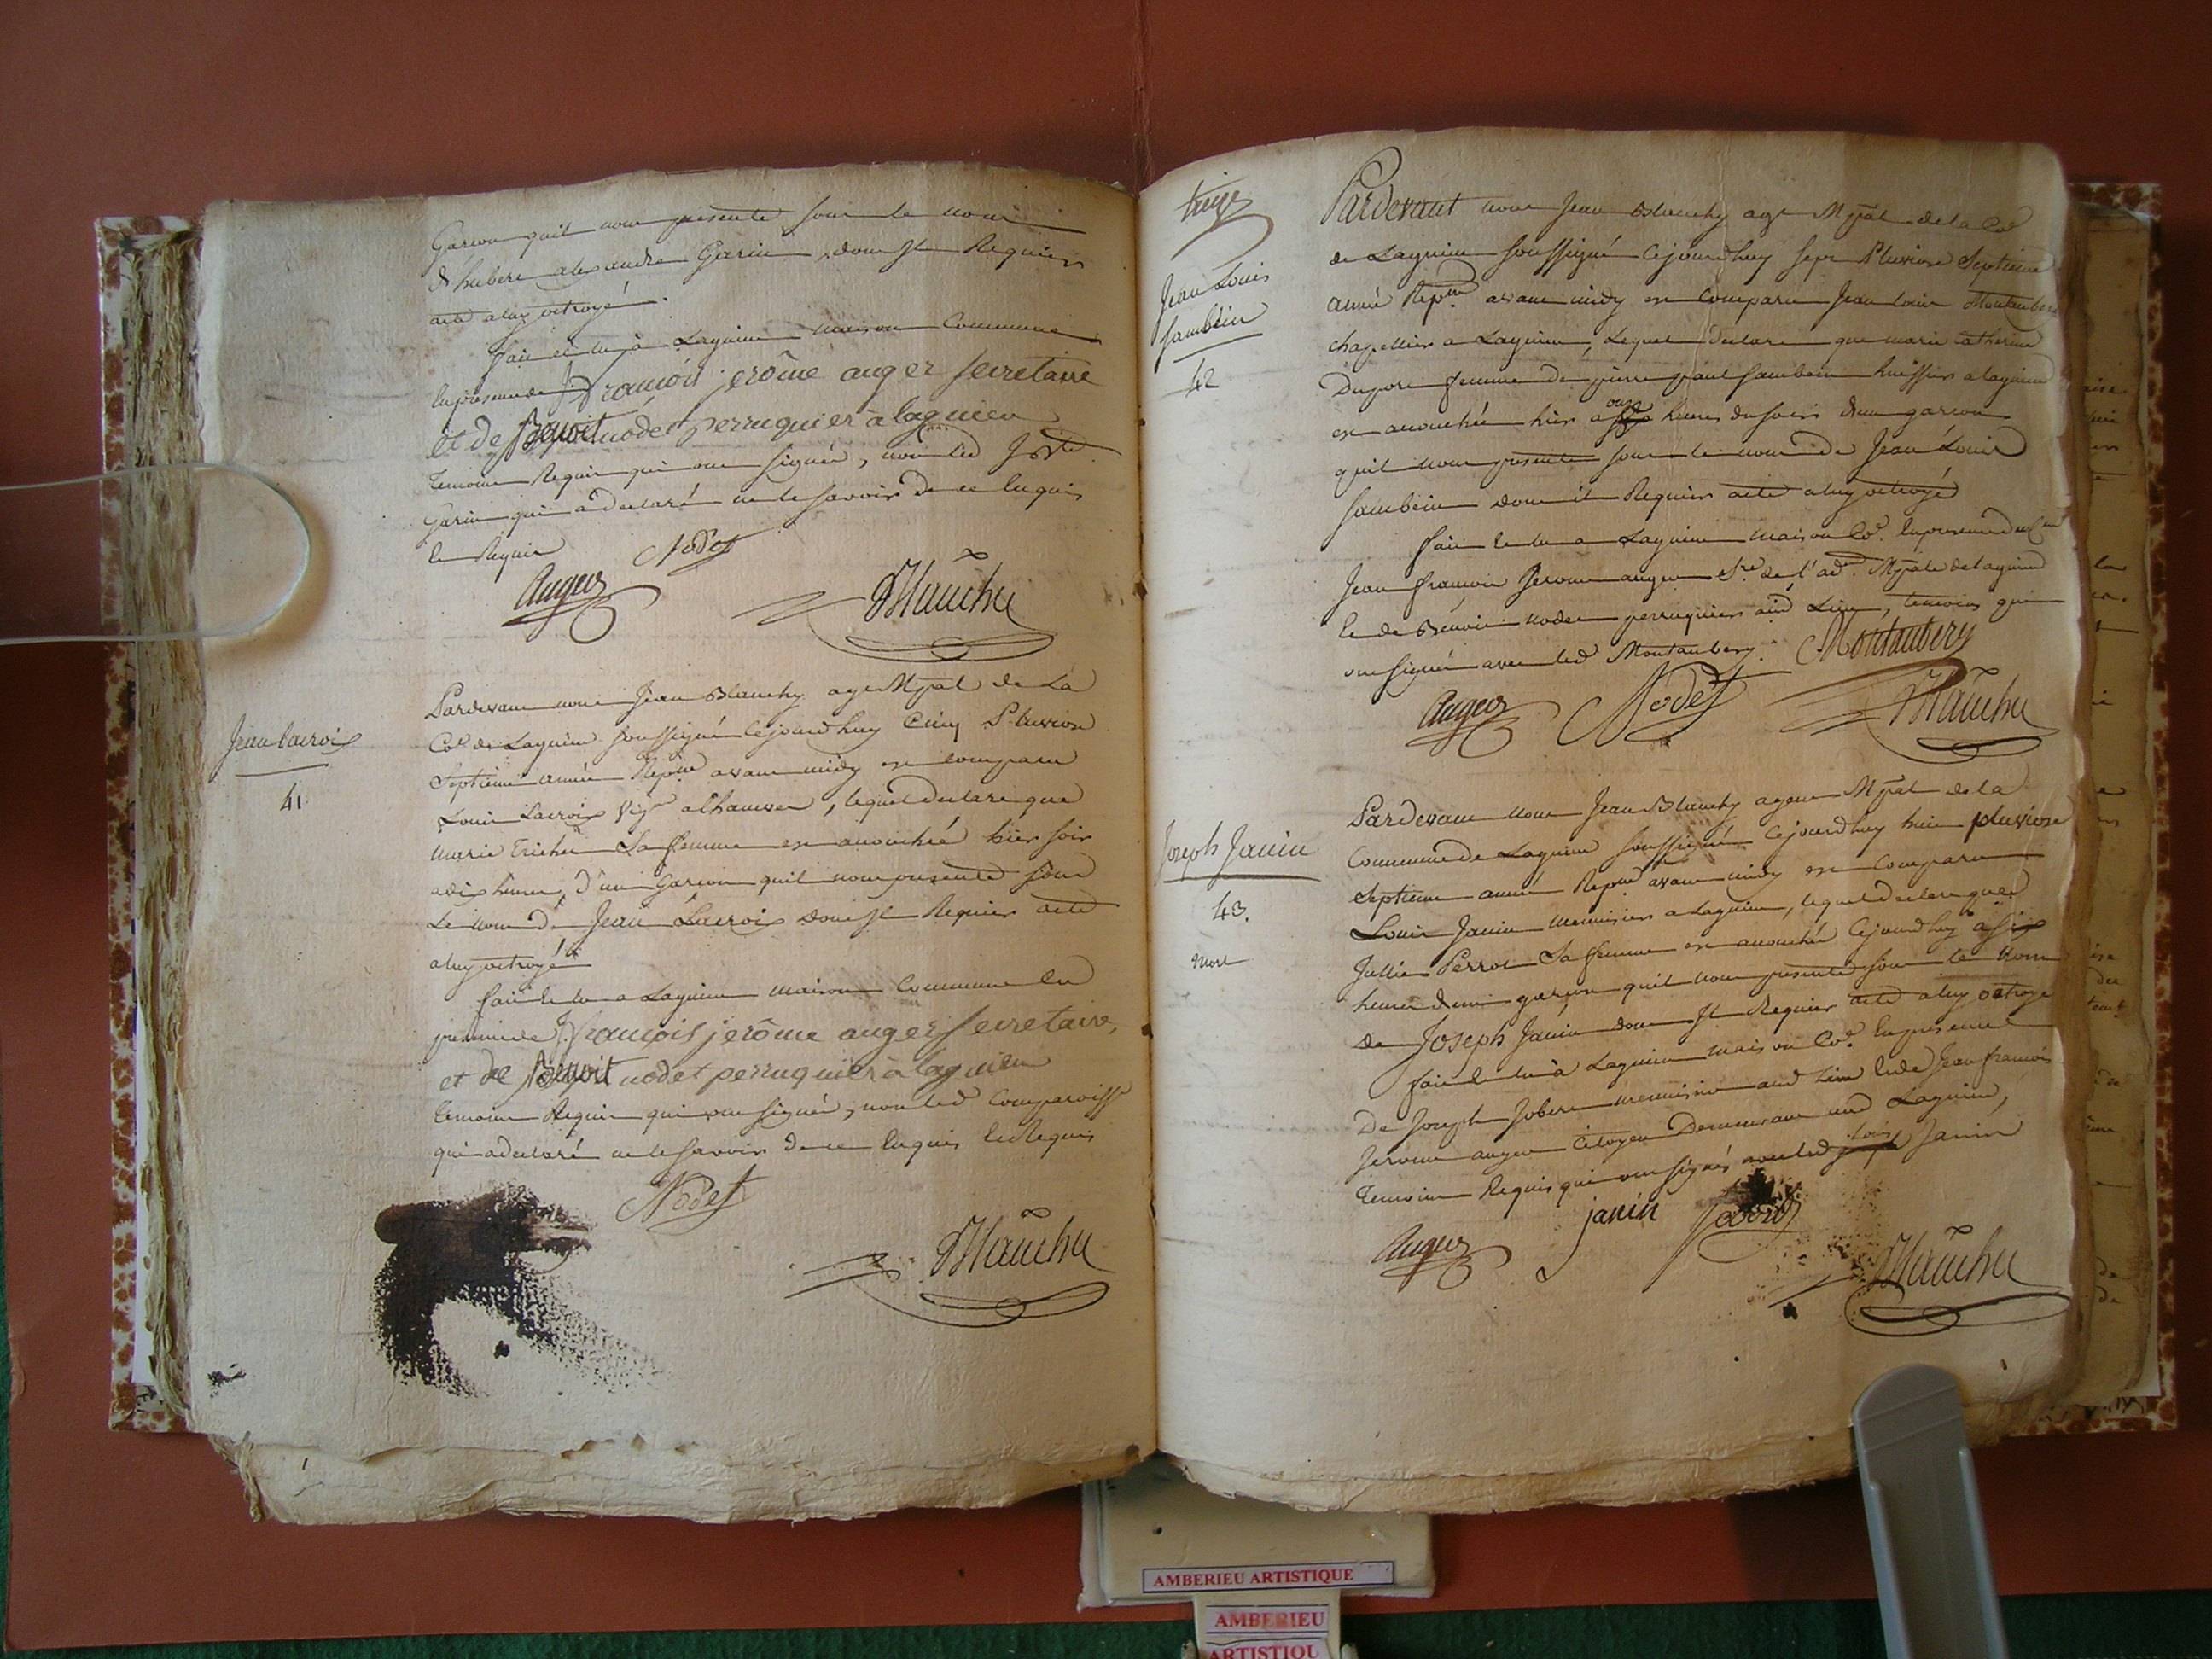 Garcon quil nous presente sous le nom
d'hubert alexandre Garin dont Il Requiert
acte a luy octroyé.
fait et lu à Lagnieu maison Commune
En presence de J francois jerôme auger secretaire
et de Benoit nodet perruquier à lagnieu
temoins Requis qui ont signés, non led
Garin qui a declaré ne le savoir de ce Enquis
et Requis Nodet
Auger Blanchy
Jean Lacroix
41
Pardevant nous Jean Blanchy agent Mpal de La
Cne de Lagnieu soussigné Cejourdhuy Cinq Pluviose
Septieme année Repne avant midy est comparu
Louis Lacroix Vign a Chauvez, lequel declare que
Marie Trichu Sa femme est accouchée hier soir
a dix heures, d'un Garcon quil nous presente sous
Le nom de Jean Lacroix dont Il Requiert acte
a luy octroyé
fait et lu a Lagnieu maison Commune En
presence de J. francois jerôme auger secretaire,
et de Benoit nodet perruquier à lagnieu
temoins Requis qui ont signé, non led Comparoiss
qui a declaré ne le savoir de ce Enquis et Requis
Nodet
Blanchy
Jean Louis
Jambein
42
Pardevant nous Jean Blanchy agt Mpal de la Cne
de Lagnieu soussigné Cejourdhuy sept Pluviose Septieme
année Repne avant midy est Comparu Jean Louis Montaubery
chapellier a Lagnieu, Lequel Declare que marie catherine
Duport femme de pierre paul Jambein huissier a lagnieu
est accouchée hier a onze heures du soir d'un garcon
quil nous presente sous le nom de Jean Louis
Jambein dont il Requiert acte a luy octroyé
fait et lu a Lagnieu maison Cne. En presence du Cen
Jean francois Jerome auger Sre de l'adn. Mpale de lagnieu
et de Benoit nodet perruquier aud Lieu, temoins qui
ont signé avec led Montaubery. Montaubery
Auger Nodet Blanchy
Joseph Janin
43.
mort
Pardevant nous Jean Blanchy agent Mpal de la
Commune de Lagnieu soussigné Cejourdhuy huit pluviose
Septieme année Repne avant midy est Comparu
Louis Janin menuisier a Lagnieu, lequel declare que
Jullie Perrot Sa femme est accouchée Cejourdhuy à six
heures d'un garçon quil nous presente sous le Nom
de Joseph Janin dont Il Requiert acte a luy octroyé
fait et lu à Lagnieu maison Cne. En presence
De Joseph Jobert menuisier aud Lieu et de Jean francois
Jerome auger Citoyen Demeurant aud Lagnieu,
temoins Requis qui ont signés avec led Louis Janin
Auger janin Blanchy
AMBERIEU ARTISTIQUE
AMBERIEU
ARTISTIQU